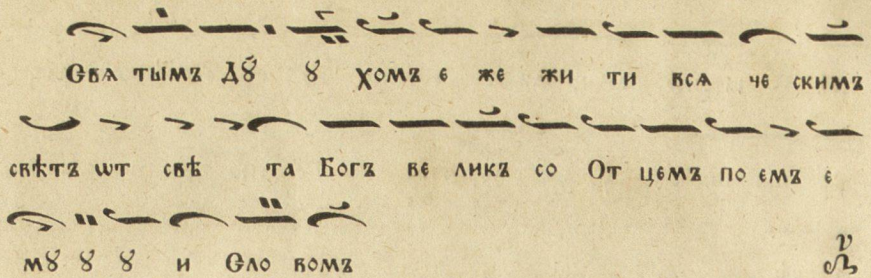 Свѧ тымъ Дꙋ́ ꙋ хомъ є же жи ти всѧ че скимъ
свѣтъ ѡт свѣ та Богъ ве ликъ со От цемъ по емъ є
мꙋ ꙋ ꙋ и Сло вомъ